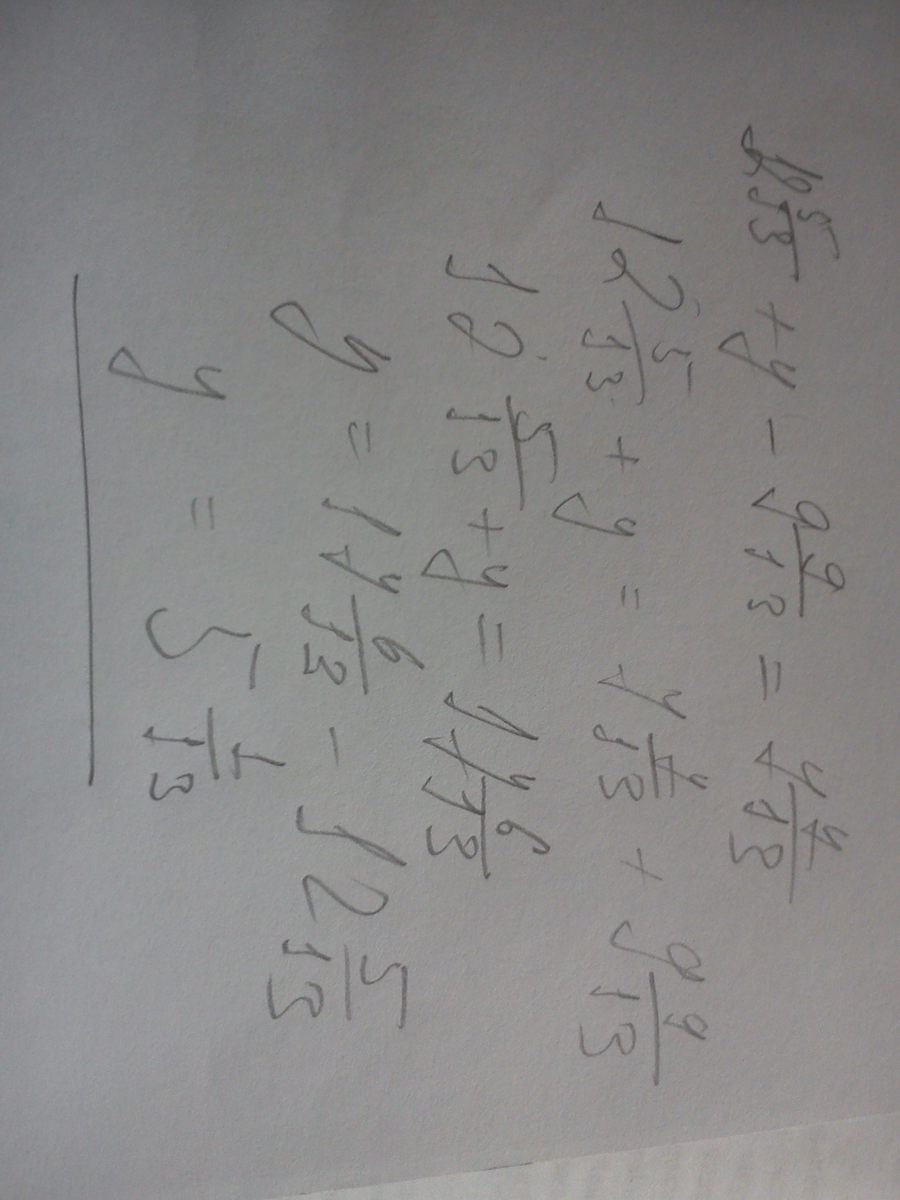 12 5/13 + y - 9 9/13 = 7 7/13
12 5/13 + y = 7 7/13 + 9 9/13
12 5/13 + y = 17 6/13
y = 17 6/13 - 12 5/13
y = 5 1/13